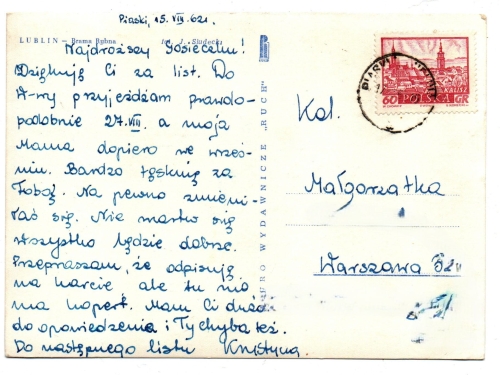 Piaski, 15.VIII.62r.
LUBLIN – Brama Rybna
fot. J. Siudecki
Najdroższy Gosieczku!
Dziękuję Ci za list. Do
W-wy przyjeżdżam prawdo-
podobnie 27.VIII a moja
Mama dopiero we wrześ-
niu. Bardzo tęsknię za
Tobą. Na pewno zmieni-
łaś się. Nie martw się
wszystko będzie dobrze.
Przepraszam, że odpisuję
na karcie, ale tu nie
ma kopert. Mam Ci dużo
do opowiedzenia i Ty chyba też.
Do następnego listu Krystyna.
BIURO WYDAWNICZE „RUCH"
60 POLSKA GR
KALISZ
Kol.
Małgorzatka
Warszawa